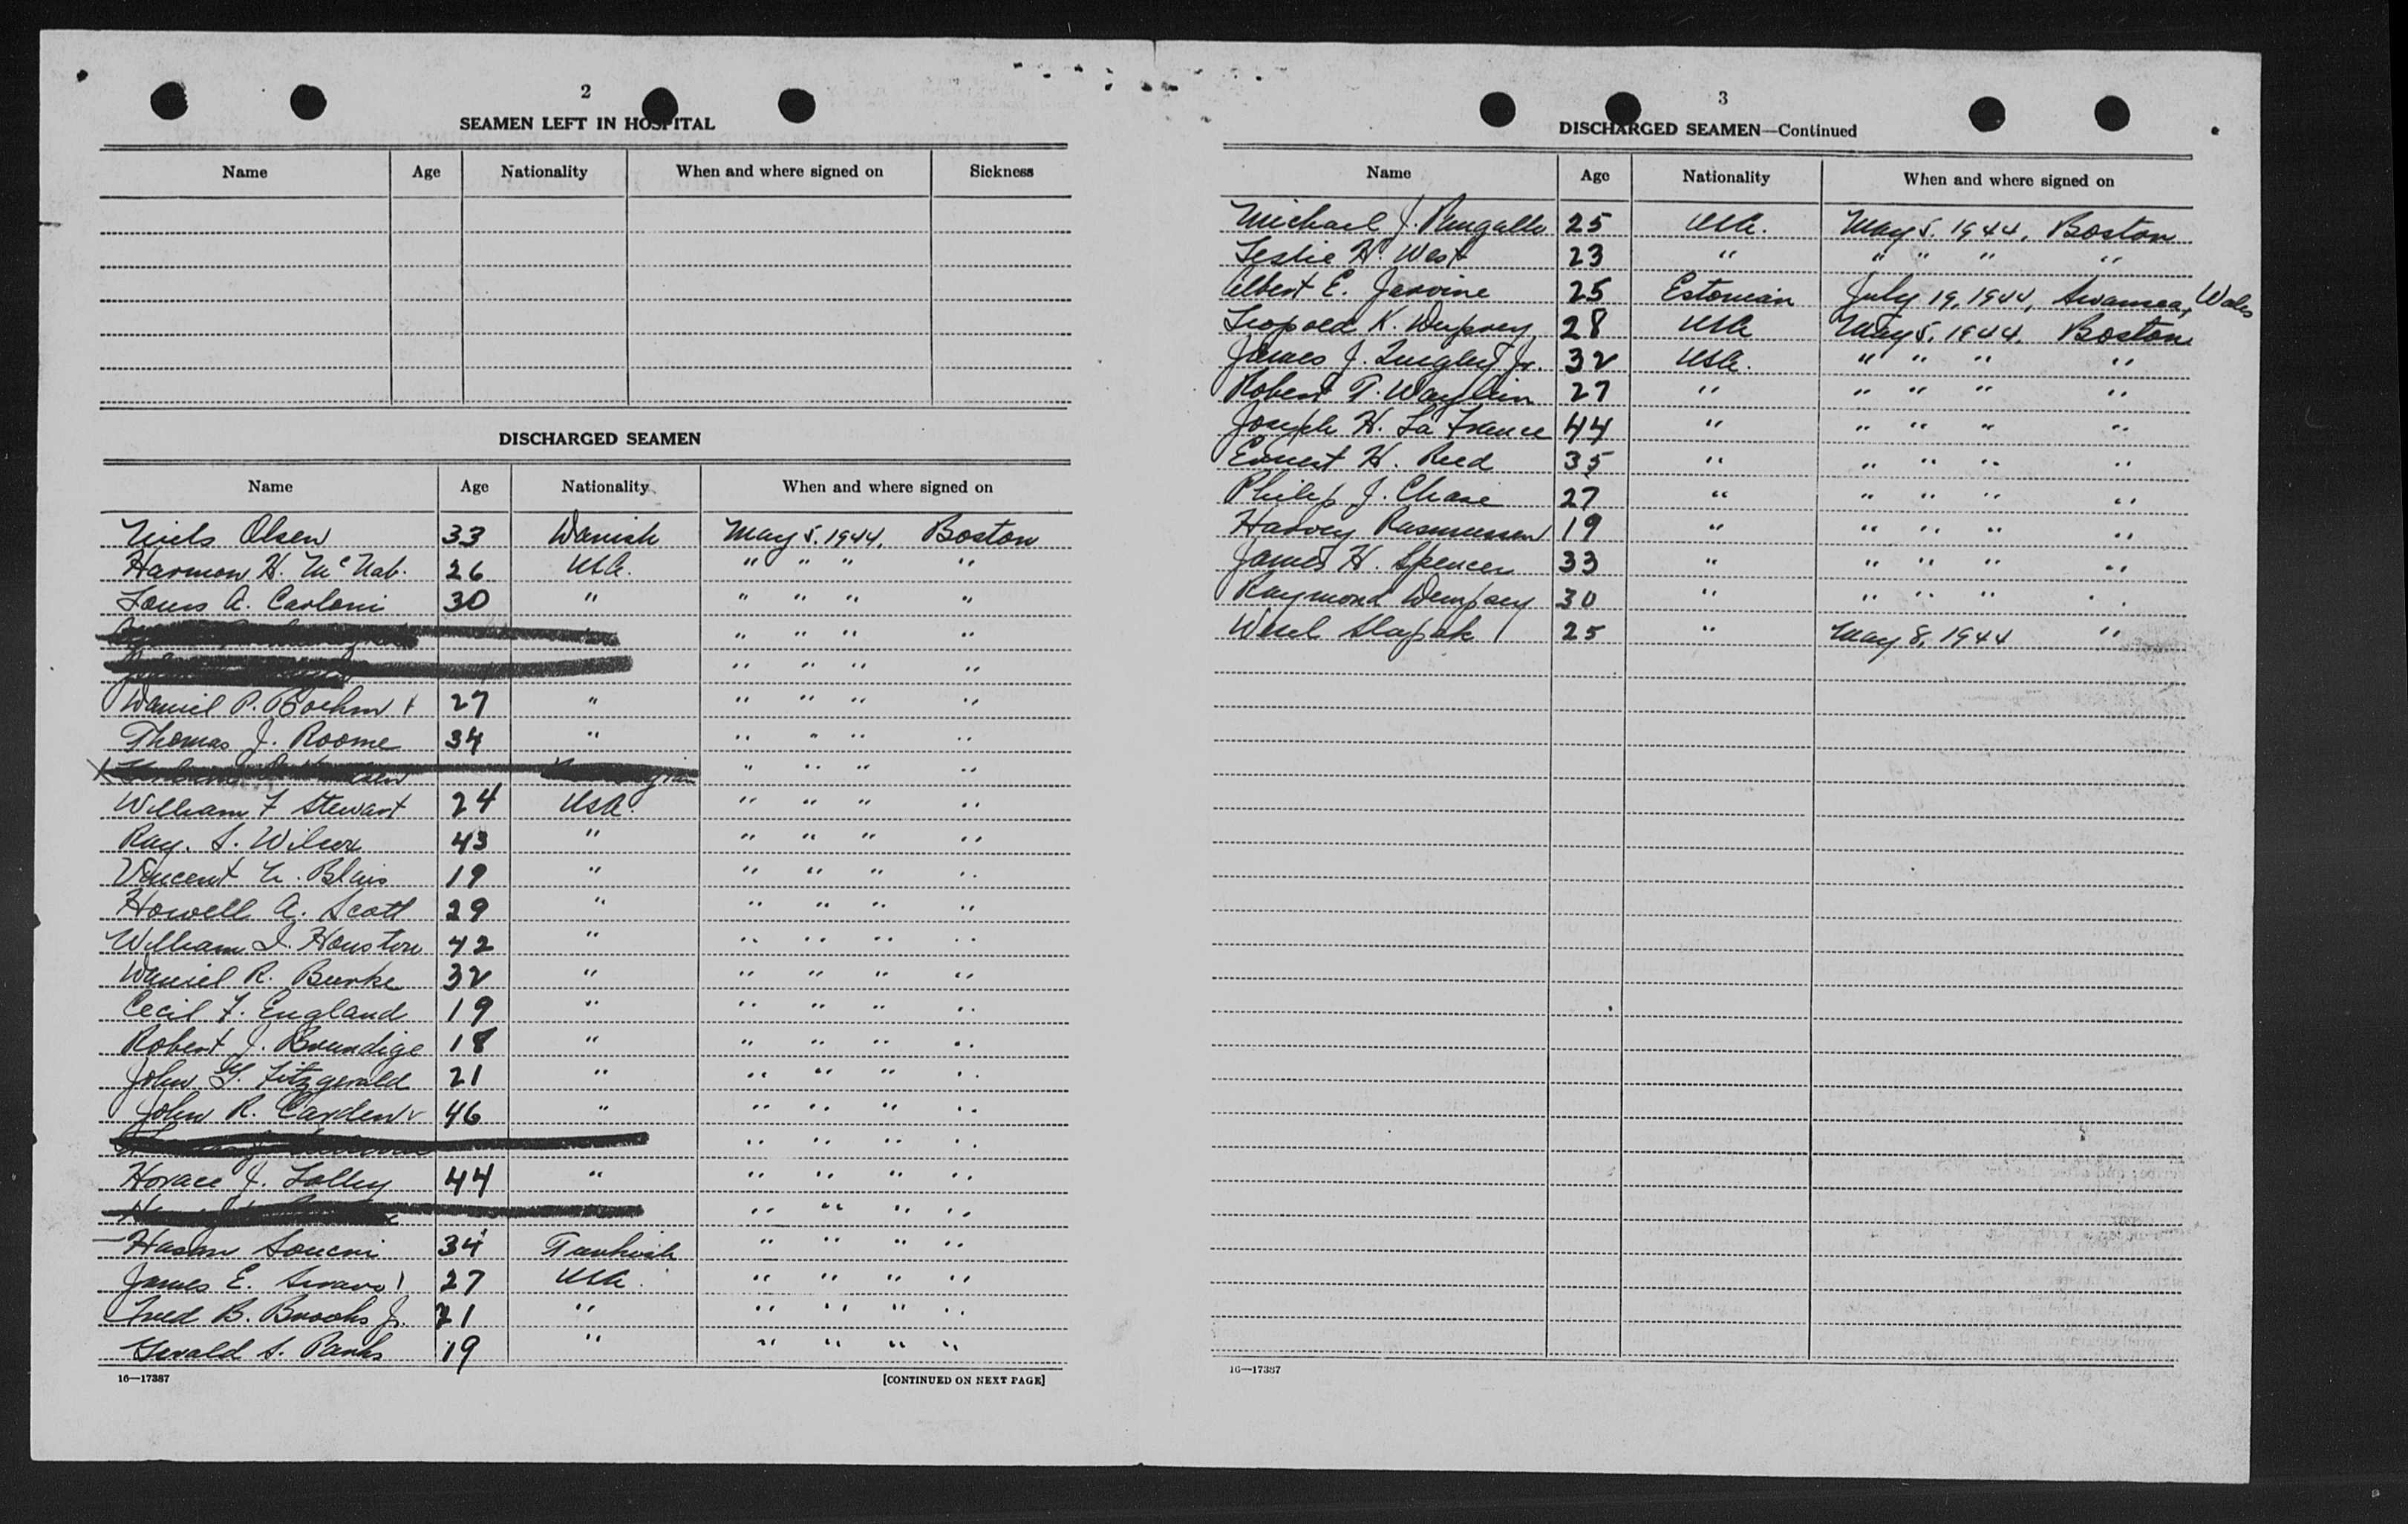 2
SEAMEN LEFT IN HOSPITAL
Name Age Nationality When and where signed on Sickness
DISCHARGED SEAMEN
Name Age Nationality When and where signed on
Niels Olsen 33 Danish May 5, 1944, Boston
Harmon H. McNab. 26 USA. " " " "
Louis A. Carloni 30 " " " " "
" " " "
" " " "
Daniel P. Boehm 27 " " " " "
Thomas J. Roome 34 " " " " "
" " " "
William F Stewart 24 USA. " " " "
Ray. S. Wilcox 43 " " " " "
Vincent L. Blais 19 " " " " "
Howell A. Scott 29 " " " " "
William I. Houston 42 " " " " "
Daniel R. Burke 32 " " " " "
Cecil F. England 19 " " " " "
Robert J. Brundige 18 " " " " "
John G. Fitzgerald 21 " " " " "
John R. Carden 46 " " " " "
" " " "
Horace J. Lolley 44 " " " " "
" " " "
Hasan 34 Turkish " " " "
James E. 27 USA. " " " "
Fred B. Brooks Jr. 21 " " " " "
Gerald S. Parks 19 " " " " "
16—17387 [CONTINUED ON NEXT PAGE]
3
DISCHARGED SEAMEN—Continued
Name Age Nationality When and where signed on
Michael J. 25 USA. May 5, 1944, Boston
Leslie H. West 23 " " " " "
Albert E. Jarvine 25 Estonian July 19, 1944, Swansea, Wales
Leopold K. Dempsey 28 USA May 5, 1944, Boston
James J. Quigley Jr. 32 USA. " " " "
Robert T. 27 " " " " "
Joseph H. La France 44 " " " " "
Ernest H. Reed 35 " " " " "
Philip J. Chase 27 " " " " "
Harvey Rasmussen 19 " " " " "
James H. Spencer 33 " " " " "
Raymond Dempsey 30 " " " " "
Slapak 25 " May 8, 1944 "
16—17387